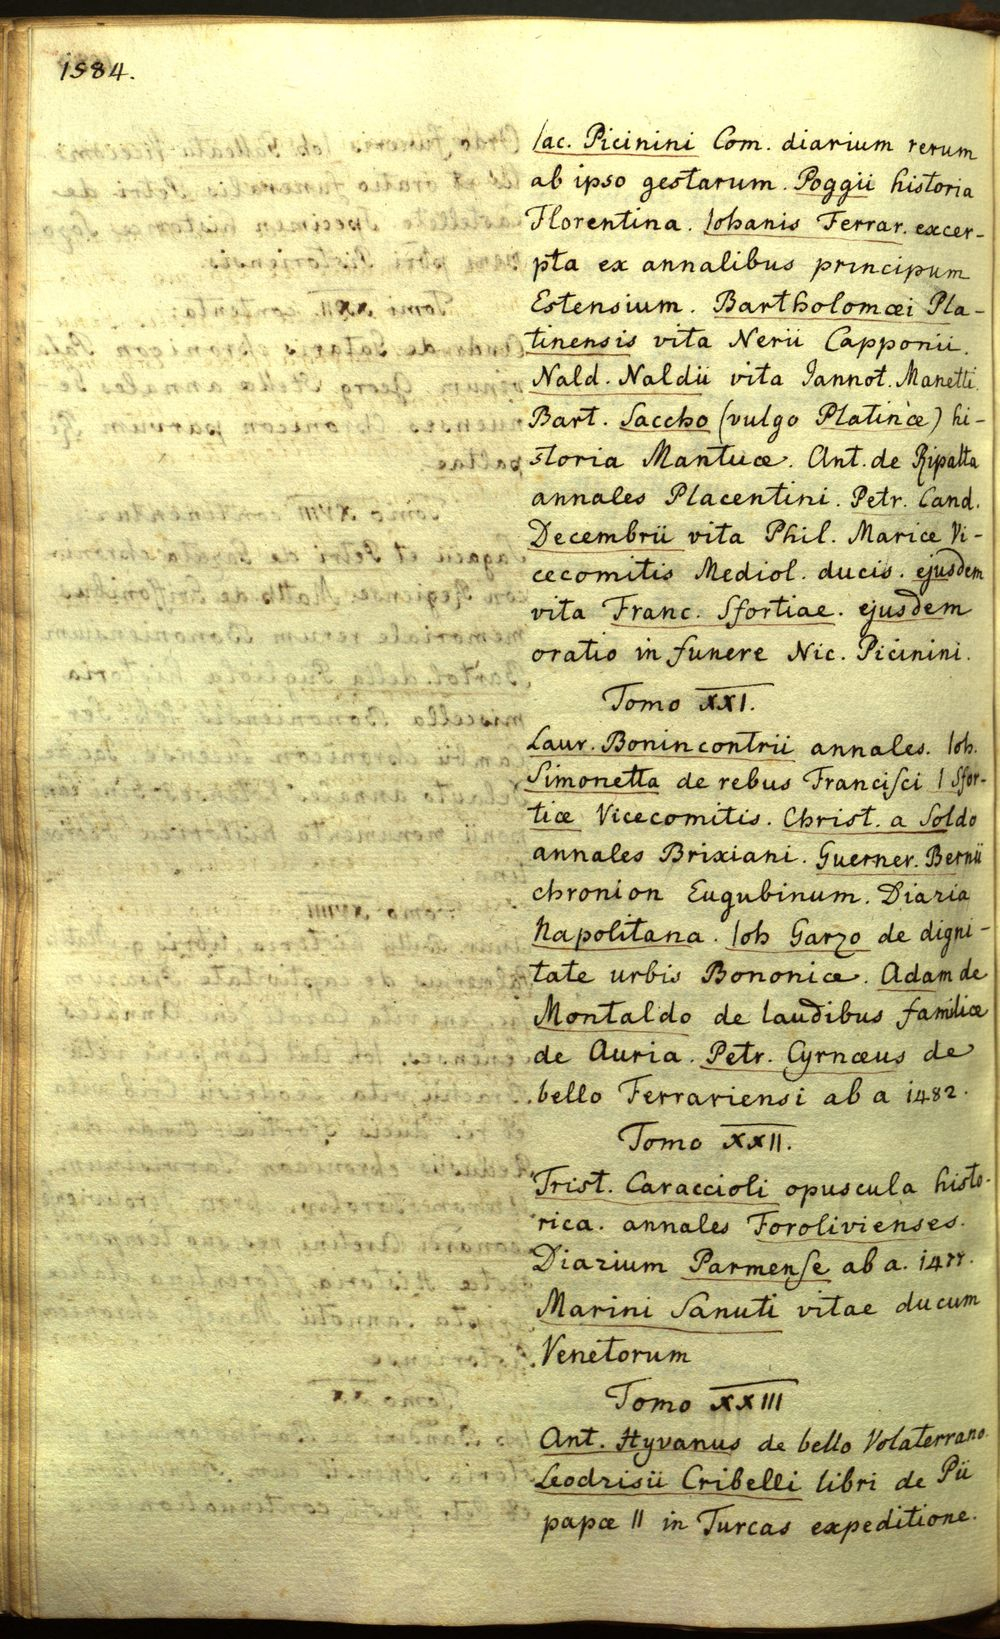 1584.
Iac. Picinini Com. diarium rerum
ab ipso gestarum. Poggii historia
Florentina. Iohanis Ferrar. excer-
pta ex annalibus principum
Estensium. Bartholomæi Pla-
tinensis vita Nerii Capponii.
Nald. Naldii vita Iannot. Manetti.
Bart. Saccho (vulgo Platinæ) hi-
storia Mantuæ. Ant. de Ripalta
annales Placentini. Petr. Cand.
Decembrii vita Phil. Mariæ Vi-
cecomitis Mediol. ducis. ejusdem
vita Franc. Sfortiae. ejusdem
oratio in funere Nic. Picinini.
Tomo XXI.
Laur. Bonincontrii annales. Ioh.
Simonetta de rebus Francisci I Sfor-
tiæ Vicecomitis. Christ. a Soldo
annales Brixiani. Guerner. Bernii
chronion Eugubinum. Diaria
Napolitana. Ioh Garzo de digni-
tate urbis Bononiæ. Adam de
Montaldo de laudibus familiæ
de Auria. Petr. Cyrnæus de
bello Ferrariensi ab a 1482.
Tomo XXII.
Trist. Caraccioli opuscula histo-
rica. annales Forolivienses.
Diarium Parmense ab a. 1477.
Marini Sanuti vitae ducum
Venetorum
Tomo XXIII
Ant. Hyvanus de bello Volaterrano.
Leodrisii Cribelli libri de Pii
papæ II in Turcas expeditione.